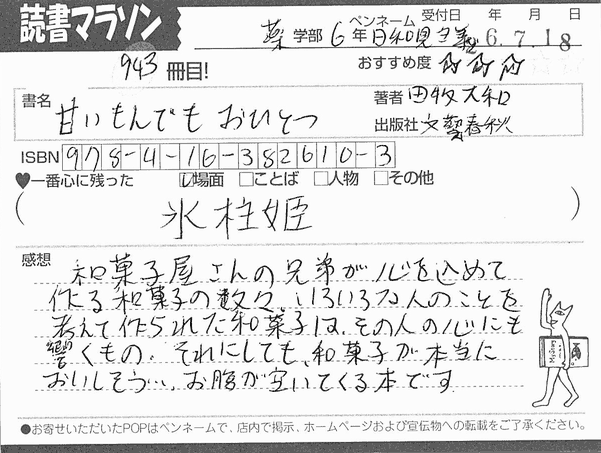 読書マラソン
943冊目!
薬学部6年 ペンネーム 日和見主義 受付日 年 月 日
6.7.18
おすすめ度
書名 甘いもんでも おひとつ
著者 田牧大和
出版社 文藝春秋
ISBN 978-4-16-382610-3
♥一番心に残った ☑場面 □ことば □人物 □その他
(氷柱姫)
感想
和菓子屋さんの兄弟が心を込めて
作る和菓子の数々、いろいろな人のことを
考えて作られた和菓子は、その人の心にも
響くもの。それにしても、和菓子が本当に
おいしそう…、お腹が空いてくる本です
●お寄せいただいたPOPはペンネームで、店内で掲示、ホームページおよび宣伝物への転載をご了承ください。